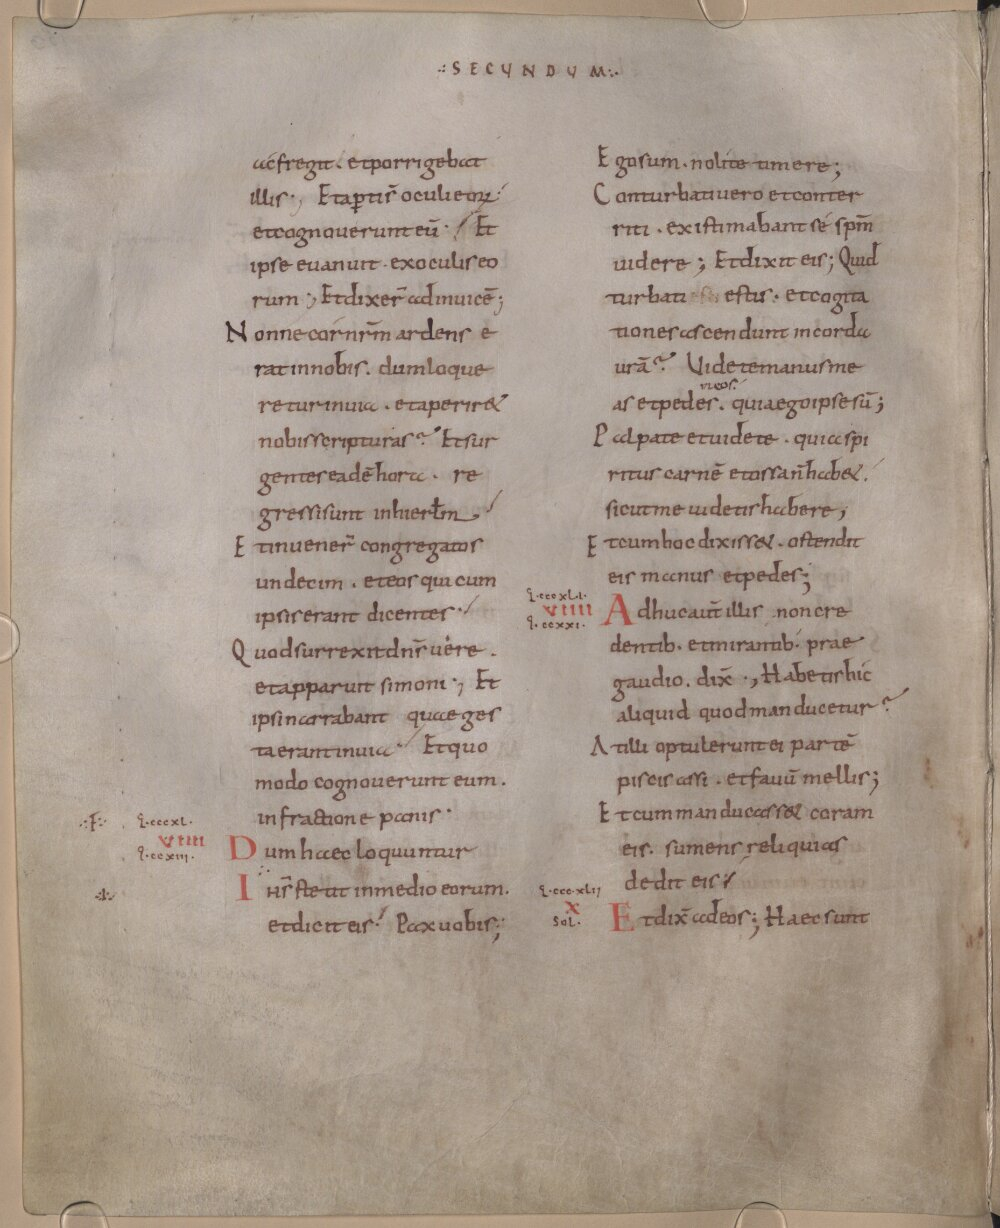 ·:SECUNDUM:·
ac fregit . et porrigebat
illis ·, Et ap̱tis̄ oculi eoꝝ·
et cognoverunt eū · Et
ipse evanuit · ex oculis eo
rum ·, Et dixer̄ ad invicē ;
Nonne cor nr̄m ardens e
rat in nobis . dum loque
retur in via . et aperir&
nobis scripturas? Et sur
gentes eadē hora · re
gressi sunt in hierłm
Et invener̄ congregatos
undecim . et eos qui cum
ipsis erant dicentes·
Quod surrexit dn̄s vere .
et apparuit simoni ·, Et
ipsi narrabant quae ges
ta erant in via· Et quo
modo cognoverunt eum .
in fractione panis·
·F· l.cccxl.
VIIII
l.ccxiii.
Dum haec loquuntur
Ih̄s stetit in medio eorum.
et dicit eis· Pax vobis ;
Ego sum . nolite timere ;
Conturbati vero et conter
riti . existimabant sé spm̄
videre ; Et dixit eis ; Quid
turbati estis . et cogita
tiones ascendunt in corda
urā? Videte manus me
as et pedes meos . quia ego ipse sū ;
Palpate et videte . quia spi
ritus carnē et ossa n̄ hab&.
sicut me videtis habere ;
Et cum hoc dixiss& . ostendit
eis manus et pedes ;
l.cccxli.
VIIII
l.ccxxi.
Adhuc aut̄ illis non cre
dentib . et mirantib . prae
gaudio . dix̄ ·, Habetis hic
aliquid quod manducetur?
At illi optulerunt ei partē
piscis assi . et favū mellis ;
Et cum manducass& coram
eis . sumens reliquias
dedit eis·
l.cccxlii
X
sol.
Et dix̄ ad eos ; Haec sunt